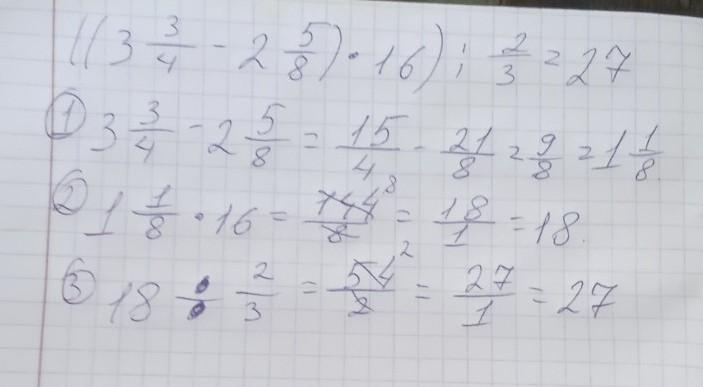 ((3 3/4 - 2 5/8) · 16) : 2/3 = 27
① 3 3/4 - 2 5/8 = 15/4 - 21/8 = 9/8 = 1 1/8.
② 1 1/8 · 16 = 144/8 ⁸ = 18/1 = 18.
③ 18 ÷ 2/3 = 54/2 ² = 27/1 = 27